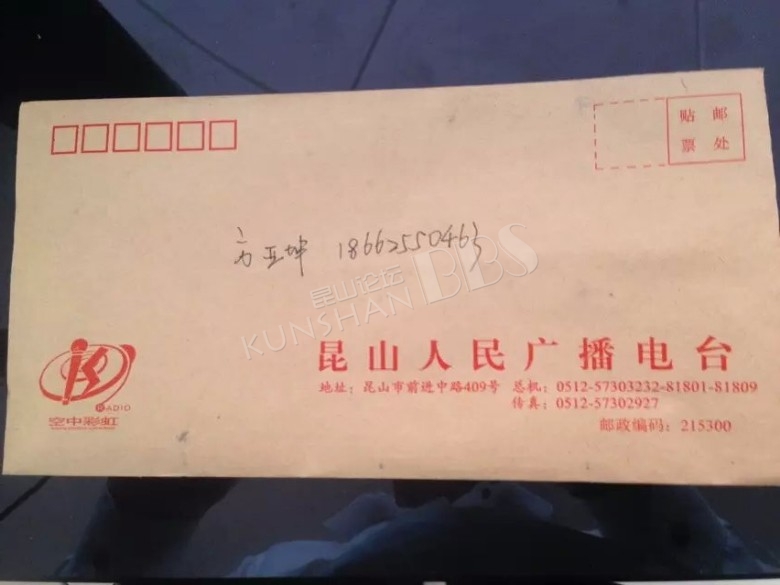 贴 邮
票 处
方亚坤 18662550463
昆山论坛
KUNSHAN BBS
RADIO
空中彩虹
昆山人民广播电台
地址：昆山市前进中路409号 总机：0512-57303232-81801-81809
传真：0512-57302927
邮政编码：215300